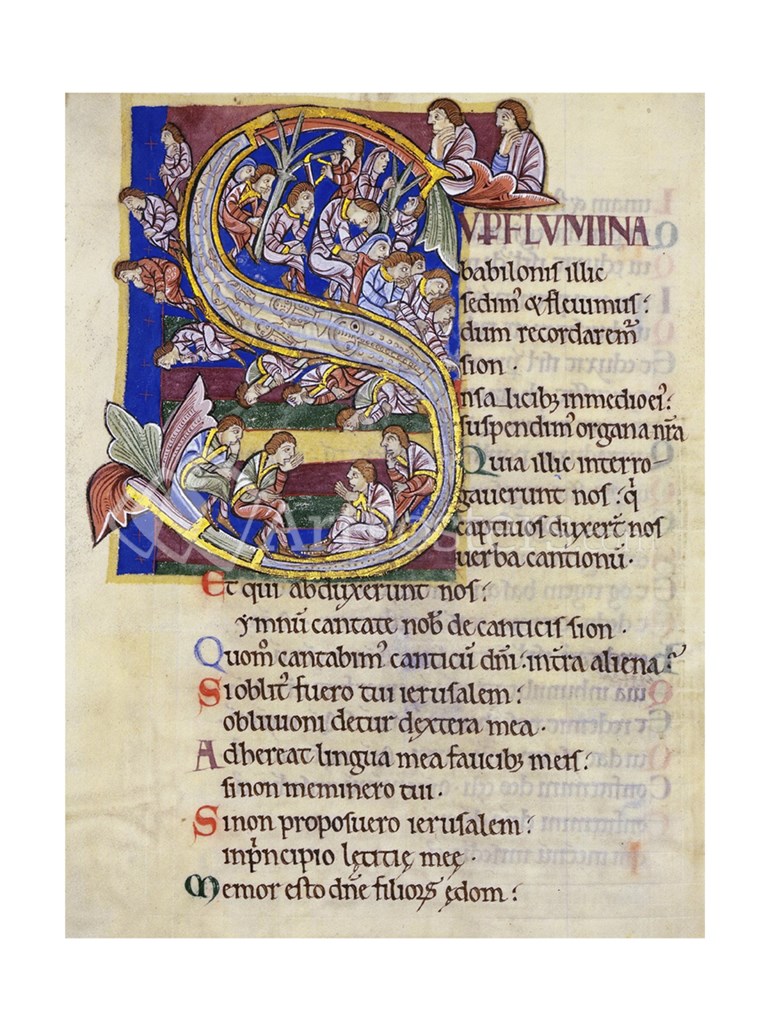 SUPFLUMINA
babilonis illic
sedim᾿ & fleuimus:
dum recordarem̃
sion.
Insalicib; inmedioei᾿:
suspendim᾿ organa nr̃a
Quia illic interro-
gauerunt nos: q̇
captiuos duxer̃t nos
uerba cantionũ.
Et qui abduxerunt nos:
ymnũ cantate nob̃ de canticis sion.
Quom̃ cantabim᾿ canticũ dñi: intr̃a aliena?
Si oblit᾿ fuero tui ierusalem:
obliuioni detur dextera mea.
Adhereat lingua mea faucib; meis:
si non meminero tui.
Si non proposuero ierusalem:
inp̃ncipio lętitię meę.
Memor esto dñe filioꝝ ędom: